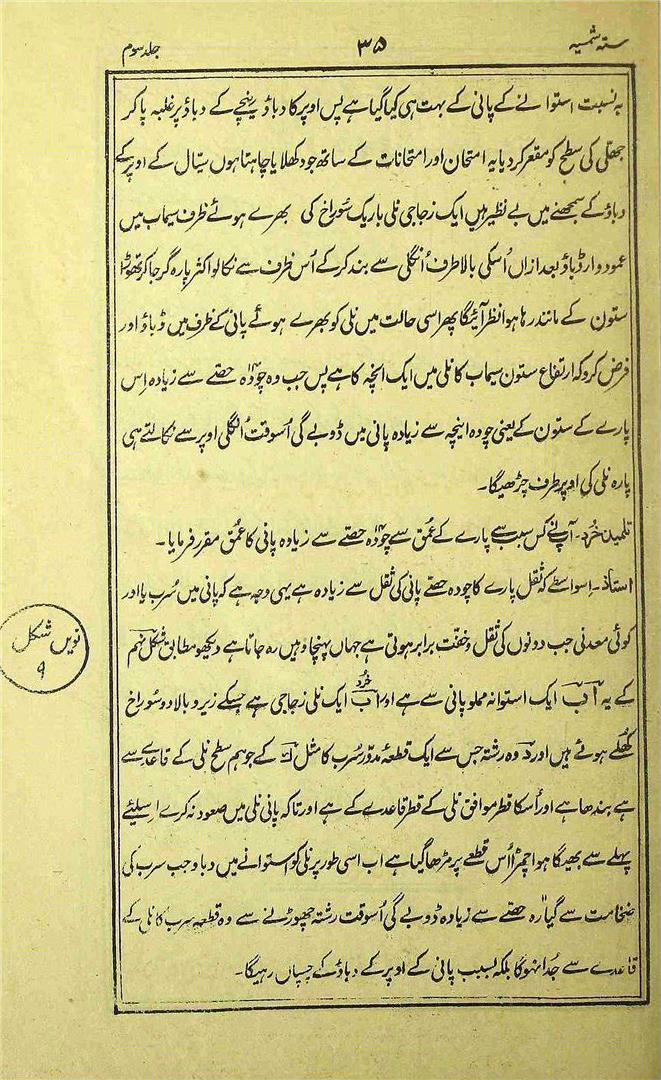 ستہ شمسیہ ۳۵ جلد سوم
بہ نسبت استوانے کے پانی کے بہت ہی کیا گیا ہے پس اوپر کا دباؤ نیچے کے دباؤ پر غلبہ پا کر
جھلّی کی سطح کو مقعر کر دیا یہ امتحان اور امتحانات کے ساتھ جو دکھلایا چاہتا ہوں سیّال کے اوپر کے
دباؤ کے سمجھنے میں بے نظیر ہیں ایک زجاجی نلی باریک سُوراخ کی بھرے ہوئے ظرف سیماب میں
عمود وار ڈباؤ بعد ازاں اُسکی بالا طرف اُنگلی سے بند کر کے اُس ظرف سے نکالو اکثر پارہ گر جا کر تھوڑا
ستون کے مانند رہا ہوا نظر آئیگا پھر اسی حالت میں نلی کو بھرے ہوئے پانی کے ظرف میں ڈباؤ اور
فرض کرو کہ ارتفاع ستون سیماب کا نلی میں ایک انچہ کا ہے پس جب وہ چودہ حصّے سے زیادہ اِس
پارے کے ستون کے یعنی چودہ اینچہ سے زیادہ پانی میں ڈوبے گی اُسوقت اُنگلی اوپر سے نکالتے ہی
پارہ نلی کی اوپر طرف چڑھیگا۔
تلمیذ خُرد۔ آپنے کس سبب سے پارے کے عُمق سے چودہ حصّے سے زیادہ پانی کا عمق مقرر فرمایا۔
استاذ۔ اِسواسطے کہ ثقل پارے کا چودہ حصّے پانی کی ثقل سے زیادہ ہے یہی وجہ ہے کہ پانی میں سُرب یا اور
کوئی معدنی جب دونوں کی ثقل و خفّت برابر ہوتی ہے جہاں پہنچا وہیں رہ جاتا ہے دیکھو مطابق شکل نہم
نویں شکل ۹
کے یہ آب ایک استوانہ مملو پانی سے ہے اور اب خُرد ایک نلی زجاجی ہے جسکے زیر و بالا دو سُوراخ
کُھلے ہوئے ہیں اور د وہ رشتہ جس سے ایک قطعۂ مدوّر سُرب کا مثل کے جو ہم سطح نلی کے قاعدے سے
ہے بندھا ہے اور اُسکا قطر موافق نلی کے قطر قاعدے کے ہے اور تا کہ پانی نلی میں صعود نہ کرے اسلیئے
پہلے سے بھیگا ہوا چمڑا اُس قطعے پر مڑھا گیا ہے اب اسی طور پر نلی کو استوانے میں دباؤ جب سرب کی
ضخامت سے گیارہ حصّے سے زیادہ ڈوبے گی اُسوقت رشتہ چھوڑنے سے وہ قطعہ سرب کا نلی کے
قاعدے سے جُدا نہوگا بلکہ بسبب پانی کے اوپر کے دباؤ کے چسپاں رہیگا۔